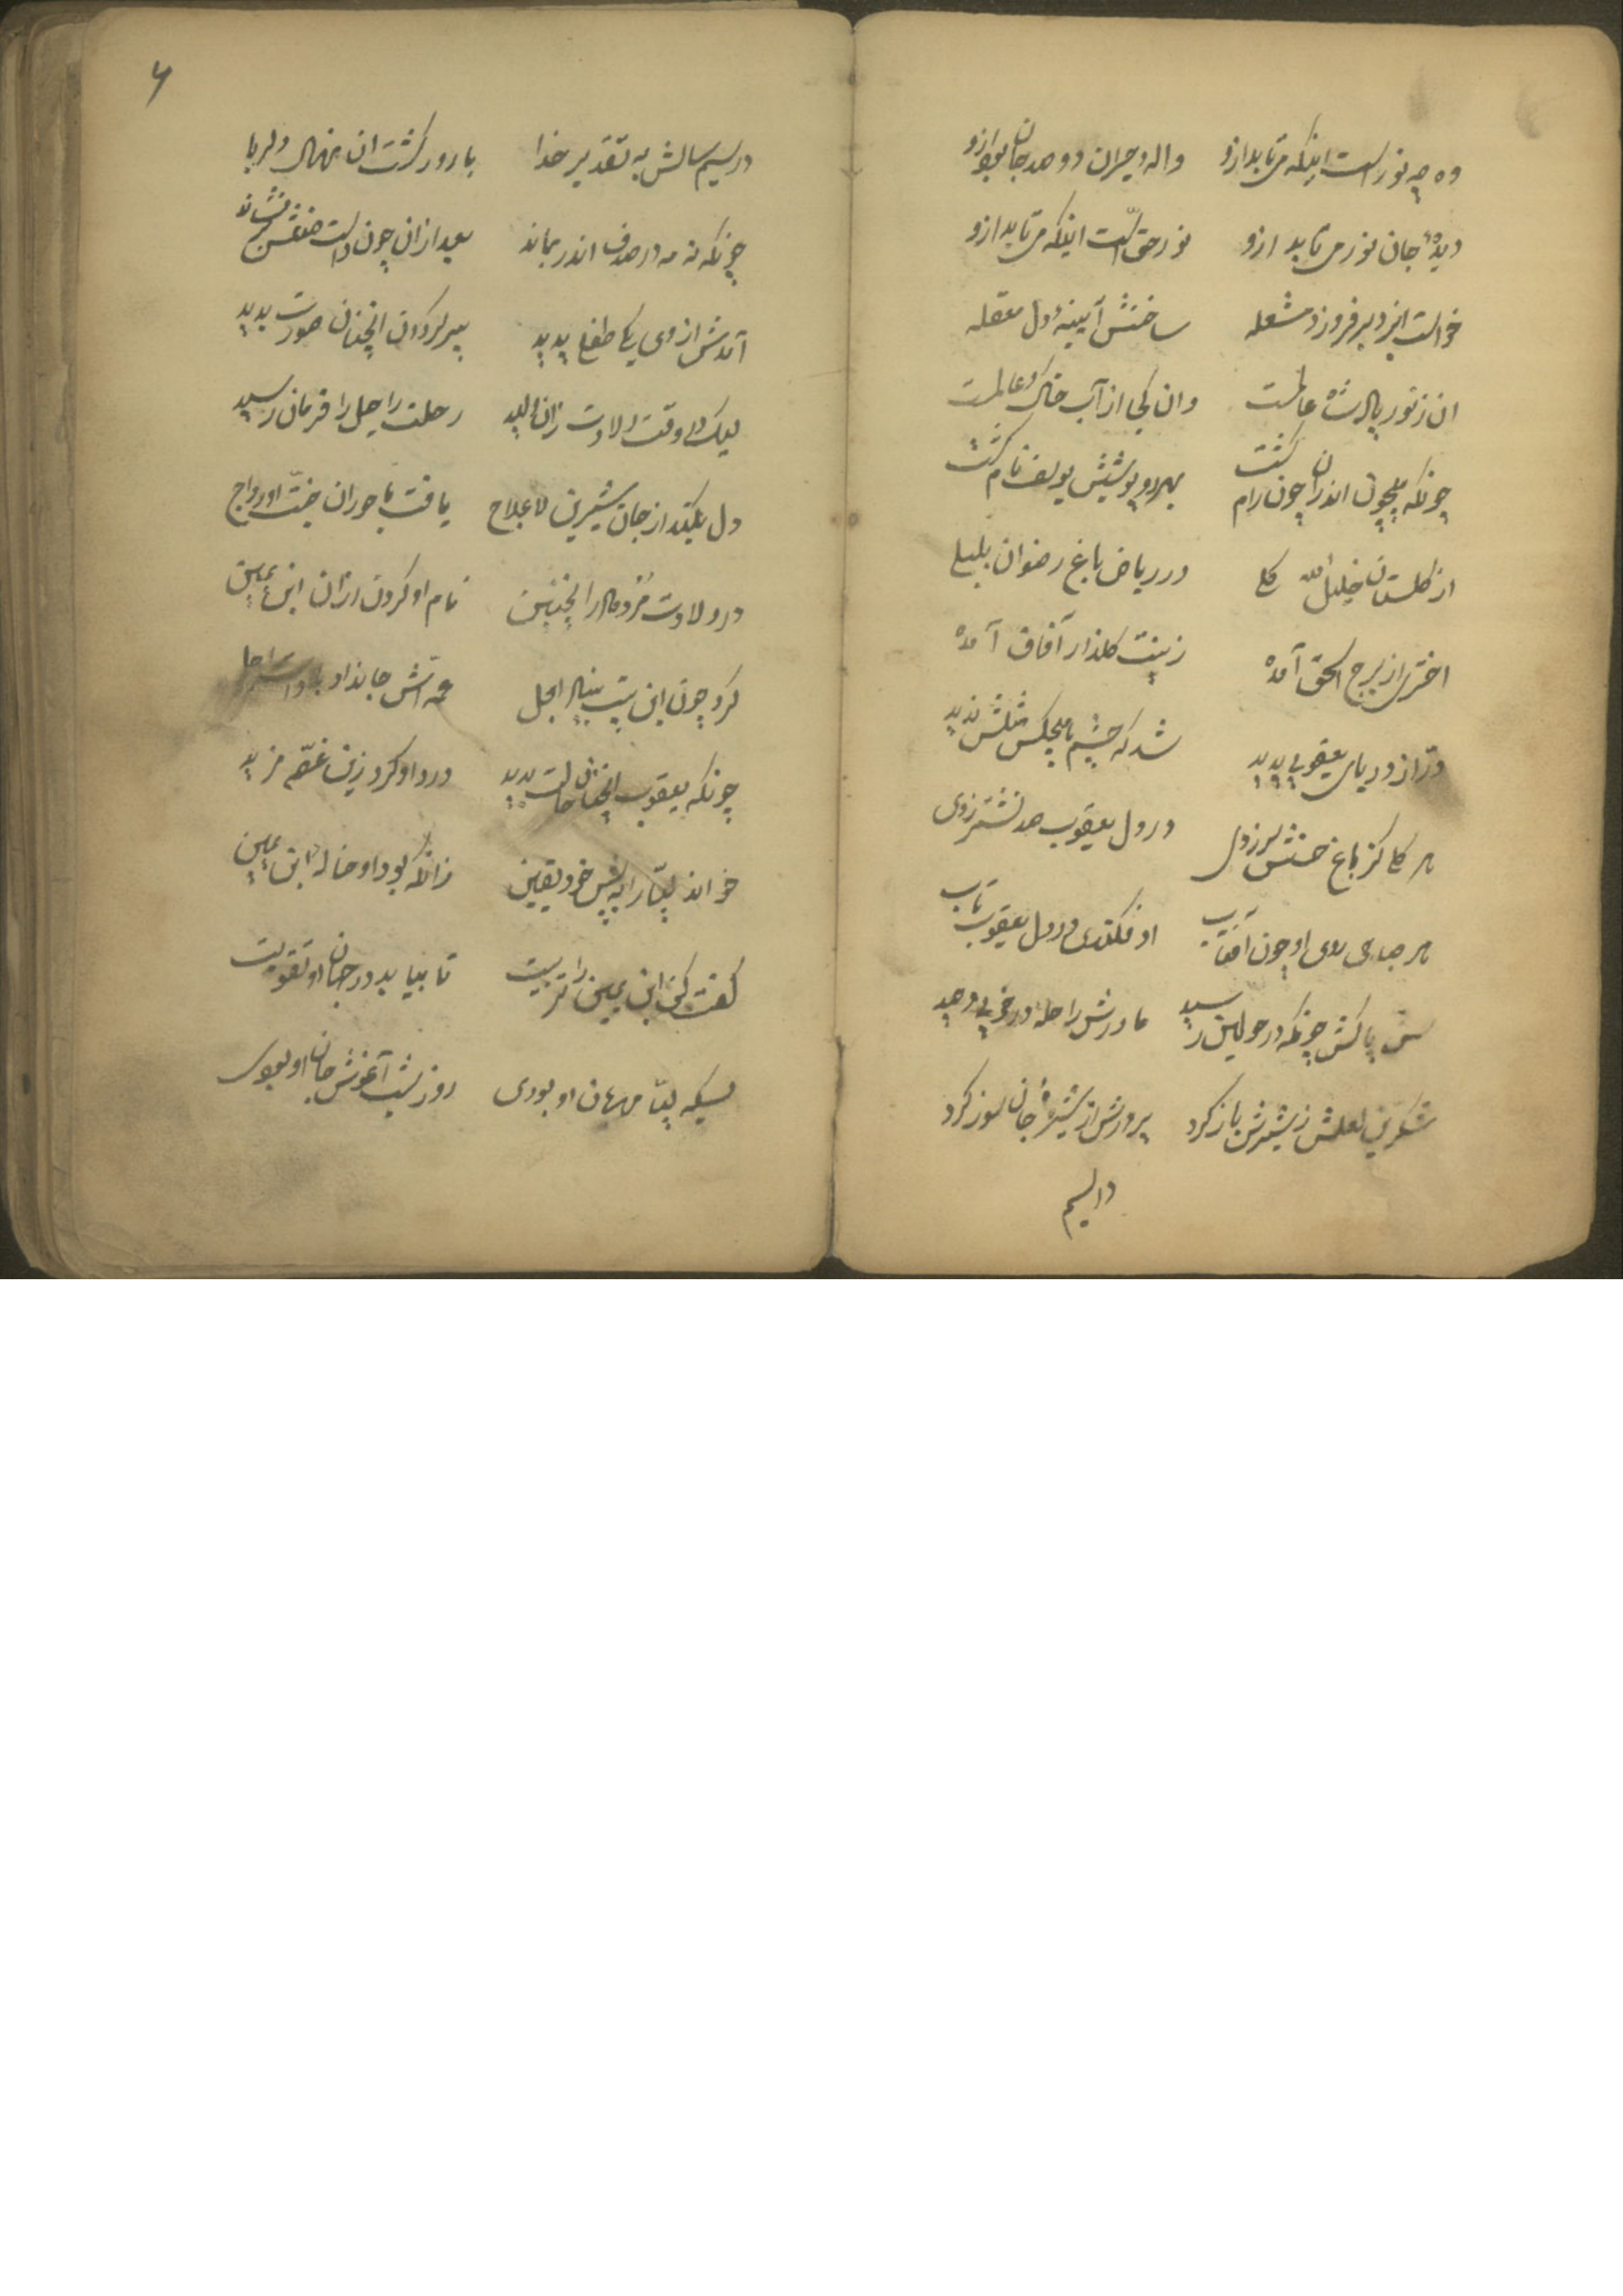 وه چه نورست اینکه می تابد ازو واله و حیران دو صد جان بود ازو
دیدهٔ جان نور می یابد ازو نور حق است اینکه می تابد ازو
خواست ایزد بر فروزد مشعله ساختش آیینهٔ دل صقله
ان ز نور پاک شاه عالمست وان کجا از آب خاک عالمست
چونکه بیچون اندران چون رام گشت بهر روپوشیش یوسف نام گشت
از گلستان خلیل الله گلی در ریاض باغ رضوان بلبلی
اختری از برج اسحق آمده زینت گلذار آفاق آمده
در از دریای یعقوبی پدید شد که چشم هیچکس مثلش ندید
هر گلی کز باغ حسنش سر زدی در دل یعقوب صد نشتر زدی
هر صباحی روی او چون آفتاب او فکندی در دل یعقوب تاب
سن پاکش چونکه در حولین رسید مادرش را حله در خوبی
شکرین لعلش ز شیرش باز کرد پرورش از شیرهٔ جان سوز کرد
در سیم
۶
در سیم سالش به تقدیر خدا بارور گشت ان نهال دلربا
چونکه نه مه در صدف اندر بماند بعد ازان چون داست
آمدش از وی یکی طفلی پدید پیر گردون انچنان صورت ندید
لیک وقت ولادت زان ولید رحلت راحیل را فرمان رسید
دل بکند از جان شیرین لاعلاج یافت با حوران جنت او رواج
در ولادت مرد مادر اینچنین نام او کردن ازان ابن یمین
کرد چون این بیت اجل عمه اش جا بداد
چونکه یعقوب انچنان حالت بدید درد او کرد زین غصه مزید
خواند لیا را به پیش خود یقین زانکه بود او خالهٔ ابن یمین
گفت کن ابن یمین را تربیت تا بیابد در جهان او تقویت
بسکه لیا مهربان او بودی روز شب آغوش جان او بودی